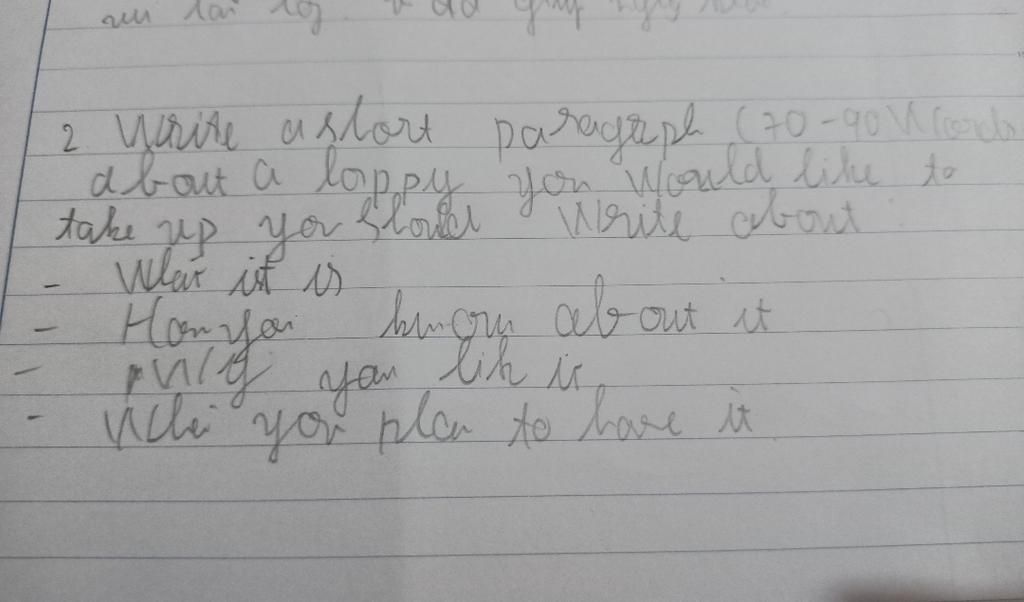 2. Write a short paragraph (70-90 Words
about a loppy you would like to
take up you should Write about:
- What ist is
- How you know about it
- Why you lik is
- When you plan to have it